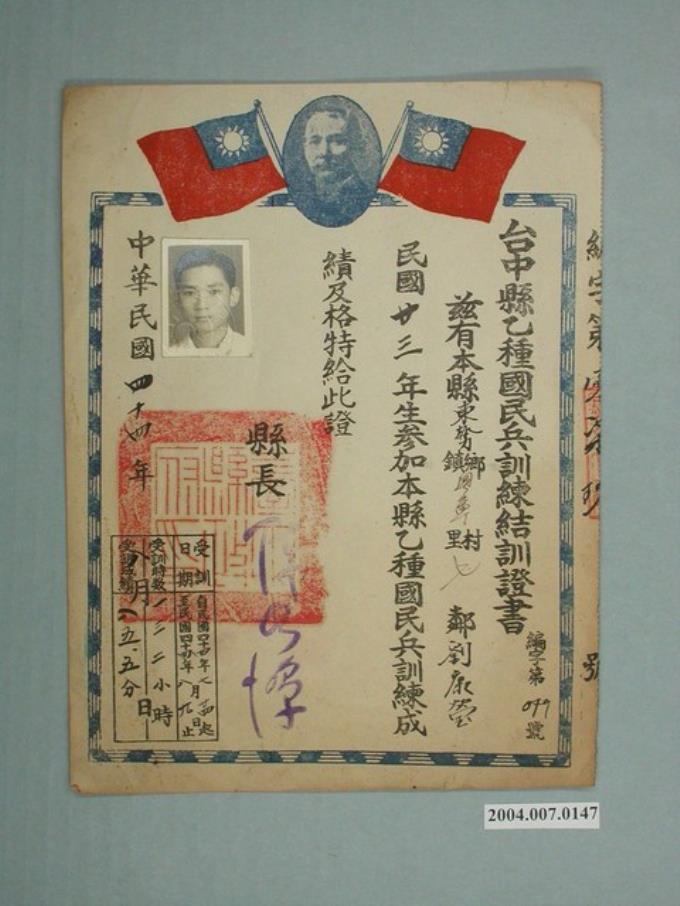 台中縣乙種國民兵訓練結訓證書
編字第 079 號
茲有本縣東勢鄉鎮 村里 七 鄰劉康
民國 廿三 年生參加本縣乙種國民兵訓練成
績及格特給此證
縣長
中華民國 四十四 年 八 月 日
受訓日期 自民國四十四年七月 日起
至民國四十四年八月九日止
受訓時數 一三二小時
受訓成績 八五.五分
字第 號
2004.007.0147